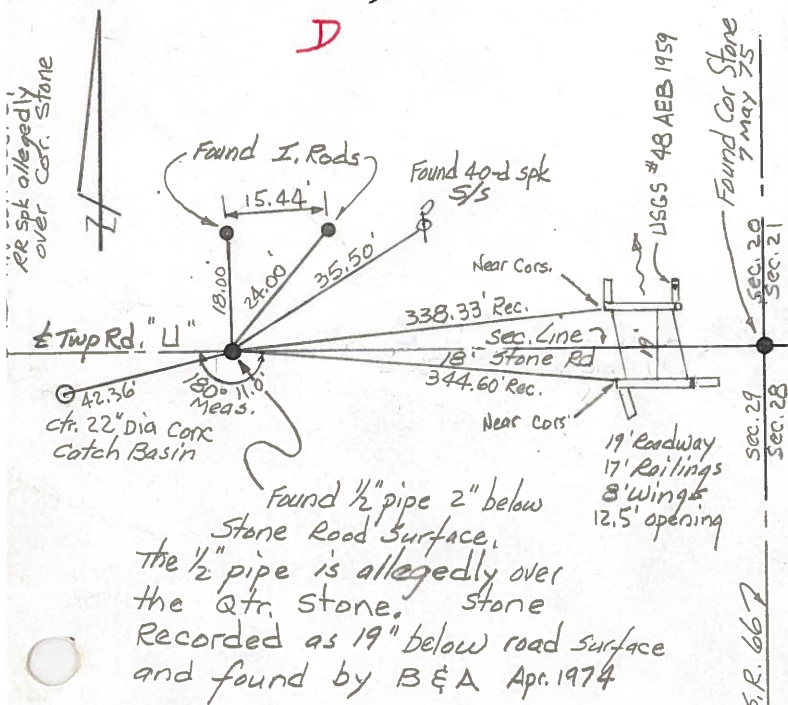 D
RR Spk allegedly
over Cor. Stone
Found I. Rods
15.44'
Found 40-d spk
S/S
USGS #48 AEB 1959
Found Cor Stone
7 May 75
18.00'
24.00'
35.50'
Near Cors.
338.33' Rec.
Sec. 20
Sec. 21
℄ Twp Rd. "U"
Sec. Line
18' Stone Rd
19'
344.60' Rec.
180° 11.0'
Meas.
42.36'
Ctr. 22" Dia Conc
Catch Basin
Near Cors
Sec. 29
Sec. 28
19' Roadway
17' Railings
8' Wings
12.5' opening
Found 1/2" pipe 2" below
Stone Road Surface.
The 1/2" pipe is allegedly over
the Qtr. Stone. Stone
Recorded as 19" below road surface
and found by B & A Apr. 1974
S.R. 667